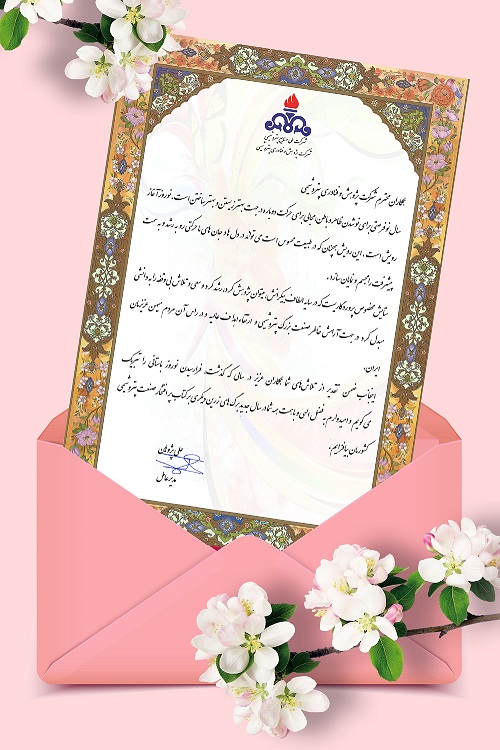 شرکت ملی صنایع پتروشیمی
شرکت پژوهش و فناوری پتروشیمی
همکاران محترم شرکت پژوهش و فناوری پتروشیمی
سال نو فرصتی برای نو شدن ظاهر و باطن، مجالی برای حرکت دوباره در جهت بهتر زیستن و بهتر ساختن است. نوروز آغاز
رویش است. این رویش همچنان که در طبیعت محسوس است می تواند در دل ها و جان های ما حرکتی رو به رشد و به سمت
پیشرفت را مجسم و نمایان سازد.
ستایش مخصوص پروردگاریست که در سایه الطاف بیکرانش، میتوان پژوهش کرد، رشد کرد و سعی و تلاش بی وقفه را به دانشی
مبدل کرد در جهت آرامش خاطر صنعت بزرگ پتروشیمی و ارتقاء اهداف عالیه و در راس آن مردم میهن عزیزمان
ایران.
اینجانب ضمن تقدیر از تلاش های شما همکاران عزیز در سال که گذشت، فرارسیدن نوروز باستانی را تبریک
می گویم و امیدوارم به فضل الهی و با همت همه شما در سال جدید برگ های زرین دیگری بر کتاب پر افتخار صنعت پتروشیمی
کشورمان بیافزایم.
علی پژوهان
مدیرعامل